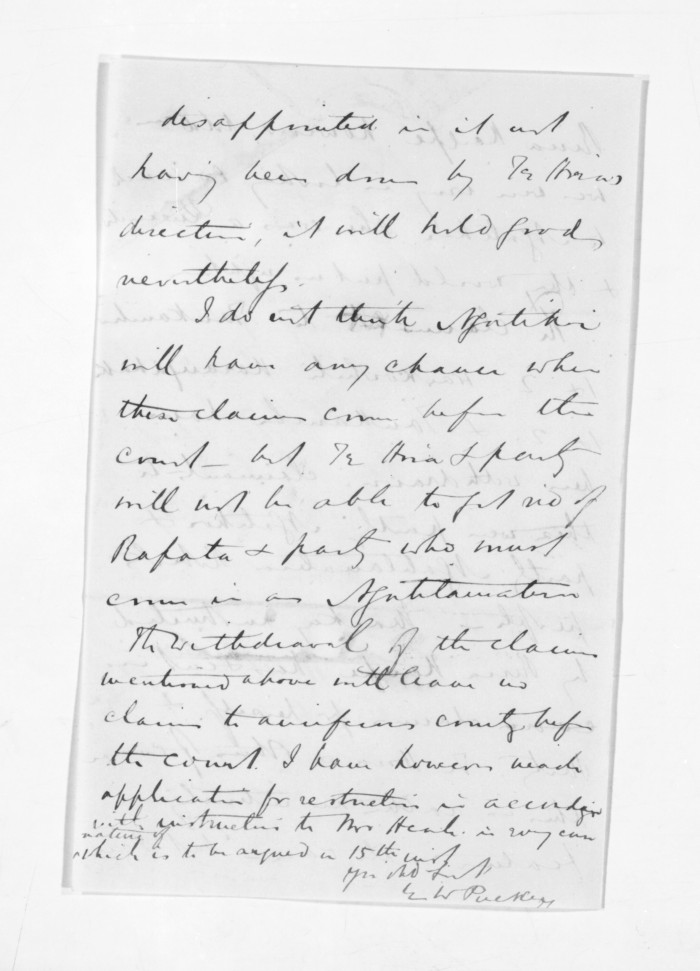 disappointed in it not
having been done by Te Hira's
direction, it will hold good,
nevertheless.
I do not think Ngatikoi
will have any chance when
these claims come before the
court - but Te Hira & party
will not be able to get rid of
Rapata & party who must
come in as Ngatitamatera
The withdrawal of the claims
mentioned above will leave no
claims to auriferous country before
the court. I have however made
application for restriction in accordance
with instruction to Mrs in every case
nature of
which is to be argued on 15th inst
Yrs obd Svt
E W Puckey